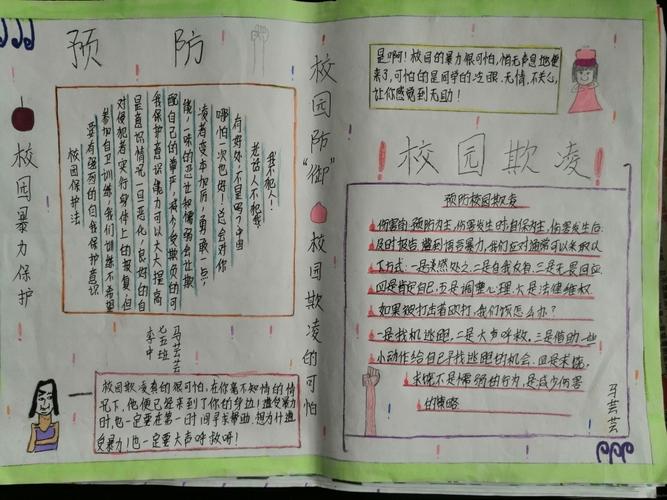 预防
校园暴力保护
我不犯人!
老话人不犯我
有好处,不是吗?中国
哪怕一次也好!总会对你
凌者变本加厉,勇敢一点,
绕,一味的忍让和懦弱会让欺
配自己的尊严,被个受欺负的可
我保护意识能力可以大大提高
是意识情况一旦恶化,良好的自
对侵犯者实行身体上的报复,但
参加自卫训练,我们训练不希望
要有强弱的自我保护意识
校园保护法
马芸芸
七五班
李中
校园欺凌真的很可怕,在你毫不知情的情
况下,他便已经来到了你的身边!遭受暴力
时,也一定要在第一时间寻求帮助,想为什遭
受暴力!也一定要大声呼救呀!
校园防“御”
校园欺凌的可怕
是啊!校园的暴力很可怕,怕无声息地便
来了,可怕的是同学的冷眼、无情、不关心,
让你感觉到无助!
校园欺凌
预防校园欺凌
伤害前预防为主,伤害发生时自保为主,伤害发生后
及时报告,遭到情节暴力,我们应对通常可以采取以
下方式:一是淡然处之,二是自我反省,三是无畏回应,
四是肯定自己,五是调整心理,六是法律维权。
如果被打击者欧打,我们该怎么办?
一是找机逃跑,二是大声呼救,三是借助一些
小动作给自己寻找逃跑的机会,四是求饶,
求饶不是懦弱的行为,是减少伤害
的策略
马芸芸